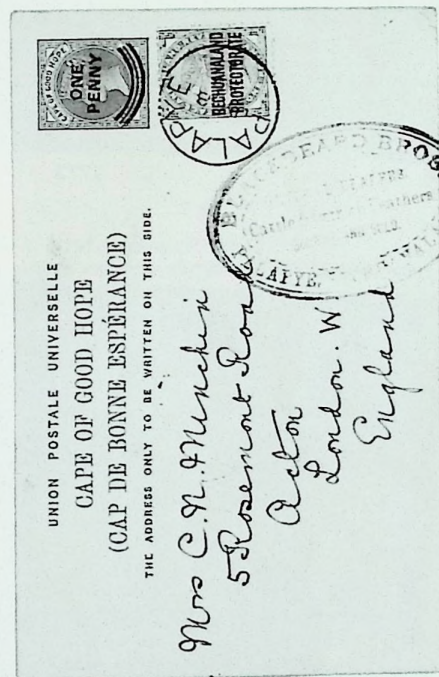 UNION POSTALE UNIVERSELLE
CAPE OF GOOD HOPE
(CAP DE BONNE ESPÉRANCE)
THE ADDRESS ONLY TO BE WRITTEN ON THIS SIDE.
CAPE OF GOOD HOPE
ONE
PENNY
BECHUANALAND
PROTECTORATE
PALAPYE
BROS
Cattle
Feathers
PALAPYE
Mrs C. N. Minchin
5 Rosemont Road
Acton
London. W
England